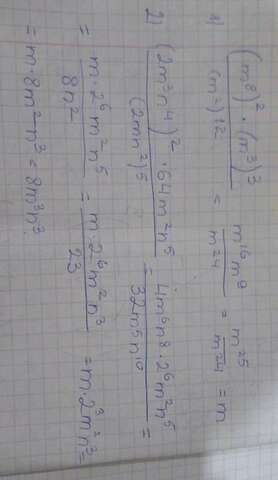 1) (m⁸)² · (m³)³ / (m²)¹² = m¹⁶m⁹ / m²⁴ = m²⁵ / m²⁴ = m
2) (2m³n⁴)² · 64m²n⁵ / (2mn²)⁵ = 4m⁶n⁸ · 2⁶m²n⁵ / 32m⁵n¹⁰ =
= m · 2⁶m²n⁵ / 8n² = m · 2⁶m²n³ / 2³ = m · 2³m²n³ =
= m · 8m²n³ = 8m³n³